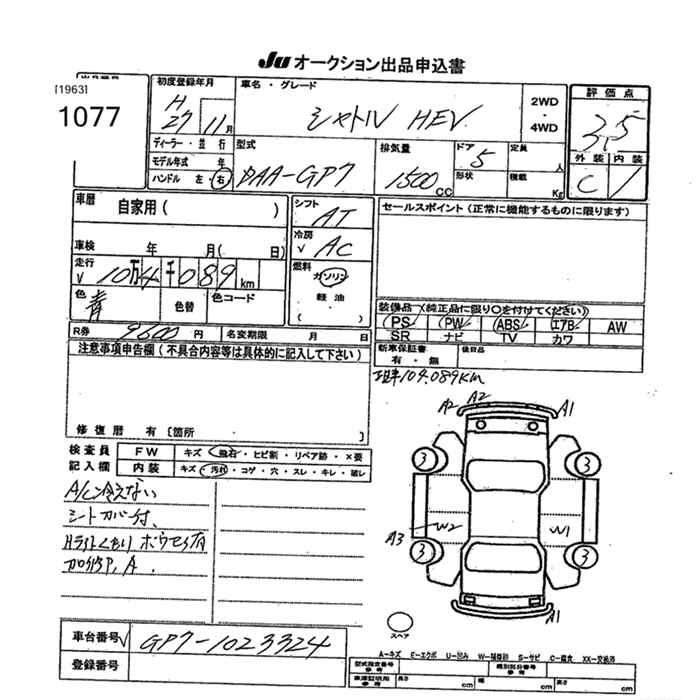 Ju オークション出品申込書
[1963]
1077
初度登録年月
H
27 11月
車名・グレード
シャトル HEV
2WD
・
4WD
評価点
外装 内装
C
ディーラー・並行
モデル年式 年
ハンドル 左・右
型式
DAA-GP7
排気量
1500 CC
ドア
5
形状
定員
人
積載
Kg
車歴
自家用 ( )
車検 年 月 ( 日)
走行
√ 10万4千089 km
色
青
色替
色コード
シフト
AT
冷房
√ AC
燃料
ガソリン
軽油
( )
セールスポイント (正常に機能するものに限ります)
装備品 (純正品に限り○を付けてください)
PS PW ABS エアB AW
SR ナビ TV カワ
新車保証書
有・無
後日品
R券 9600 円 名変期限 月 日
注意事項申告欄 (不具合内容等は具体的に記入して下さい)
109.089km
修復歴 有 [箇所
検査員
記入欄
FW キズ・飛石・ヒビ割・リペア跡・×要
内装 キズ・汚れ・コゲ・穴・スレ・キレ・破レ
A/C冷えない
シートカバー付、
Hライトくもり
A2 A2 A1
3 3
A3 W2 W1
3 3
A1
スペア
車台番号 √ GP7-1023324
登録番号
A−キズ E−エクボ U−凹み W−補修跡 S−サビ C−腐食 XX−交換済
型式指定番号
参考
類別区分番号
参考
車庫証明用
参考
長さ cm 幅 cm 高さ cm